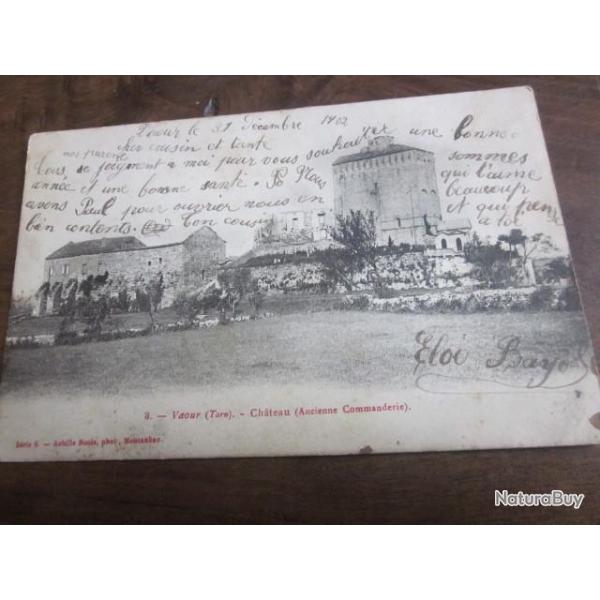 Vaour le 31 Décembre 1902
cher cousin et tante
nos parents
Tous, se joignent a moi pour vous souhaiter une bonne
année et une bonne santé. Nous sommes
avons Paul pour ouvrier nous en qui t'aime
bèn contents. Ton cousin beaucoup
et qui pense
a toi
Eloi
8. — Vaour (Tarn). - Château (Ancienne Commanderie).
Série 6. — Achille Bouis, phot., Montauban.
NaturaBuy